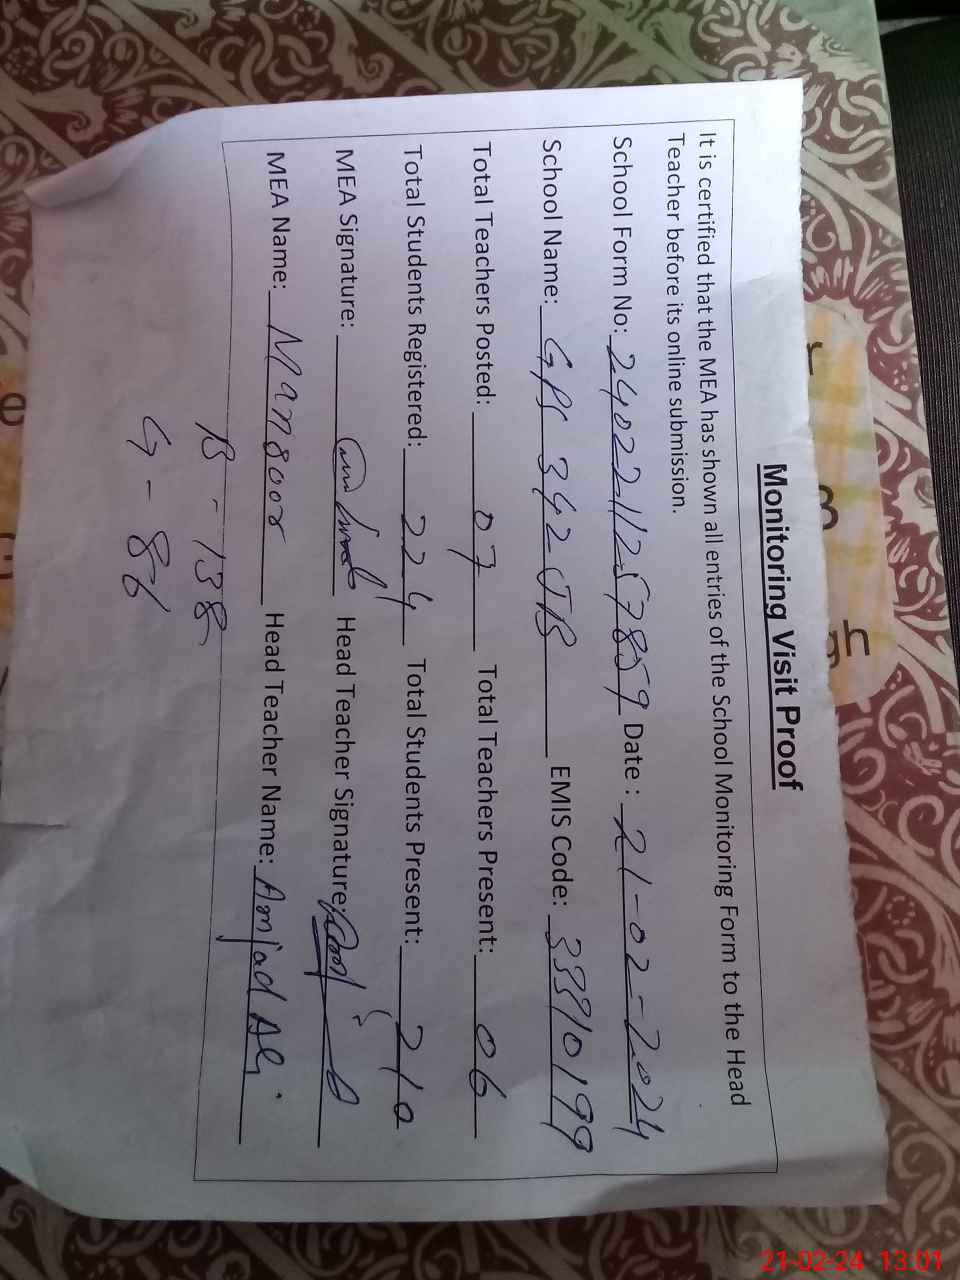 Monitoring Visit Proof
It is certified that the MEA has shown all entries of the School Monitoring Form to the Head
Teacher before its online submission.
School Form No: 2402211257859 Date : 21-02-2024
School Name: GPS 342 JB EMIS Code: 33310199
Total Teachers Posted: 07 Total Teachers Present: 06
Total Students Registered: 224 Total Students Present: 210
MEA Signature: Head Teacher Signature:
MEA Name: Manzoor Head Teacher Name: Amjad Ali
B - 138
G - 86
21-02-24 13:01